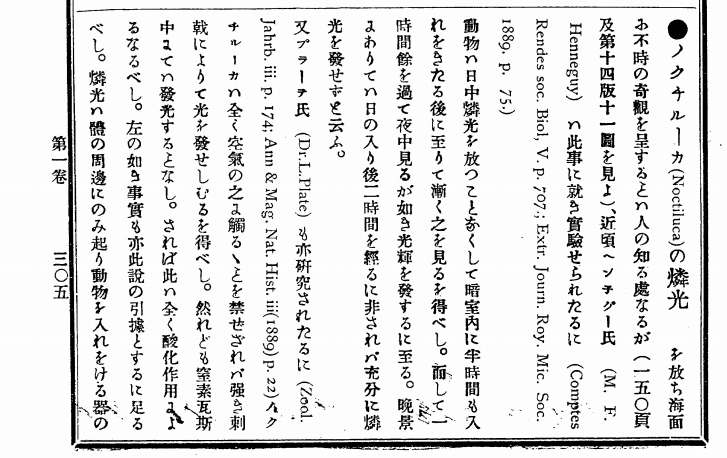 ●ノクチルーカ(Noctiluca)の燐光　を放ち海面
お不時の奇觀を呈するとハ人の知る處なるが(一五〇頁
及第十四版十一圖を見よ)、近頃ヘンチグー氏　(M. F.
Henneguy)　ハ此事に就き實驗せられたるに　(Comptes
Rendes soc. Biol, V. p. 707.; Extr. Journ. Roy. Mic. Soc.
1889. p. 75.)
動物ハ日中燐光を放つことなくして暗室內に半時間も入
れをきたる後に至りて漸く之を見るを得べし。而して一
時間餘を過て夜中見るが如き光輝を發するに至る。晩景
よありてハ日の入り後二時間を經るに非されバ充分に燐
光を發せずと云ふ。
又プラーテ氏　(Dr.L.Plate)　も亦硏究されたるに　(Zool.
Jahrb. iii. p. 174; Ann & Mag. Nat. Hist. iii(1889) p. 22)ノク
チルーカハ全く空氣の之よ觸るゝとを禁せざれバ强き刺
戟によりて光を發せしむるを得べし。然れども窒素瓦斯
中よてハ發光するとなし。されば此ハ全く酸化作用よよ
るなるべし。左の如き事實も亦此說の引據とするに足る
べし。燐光ハ體の周邊にのみ起り動物を入れをける器の
第一卷　三〇五